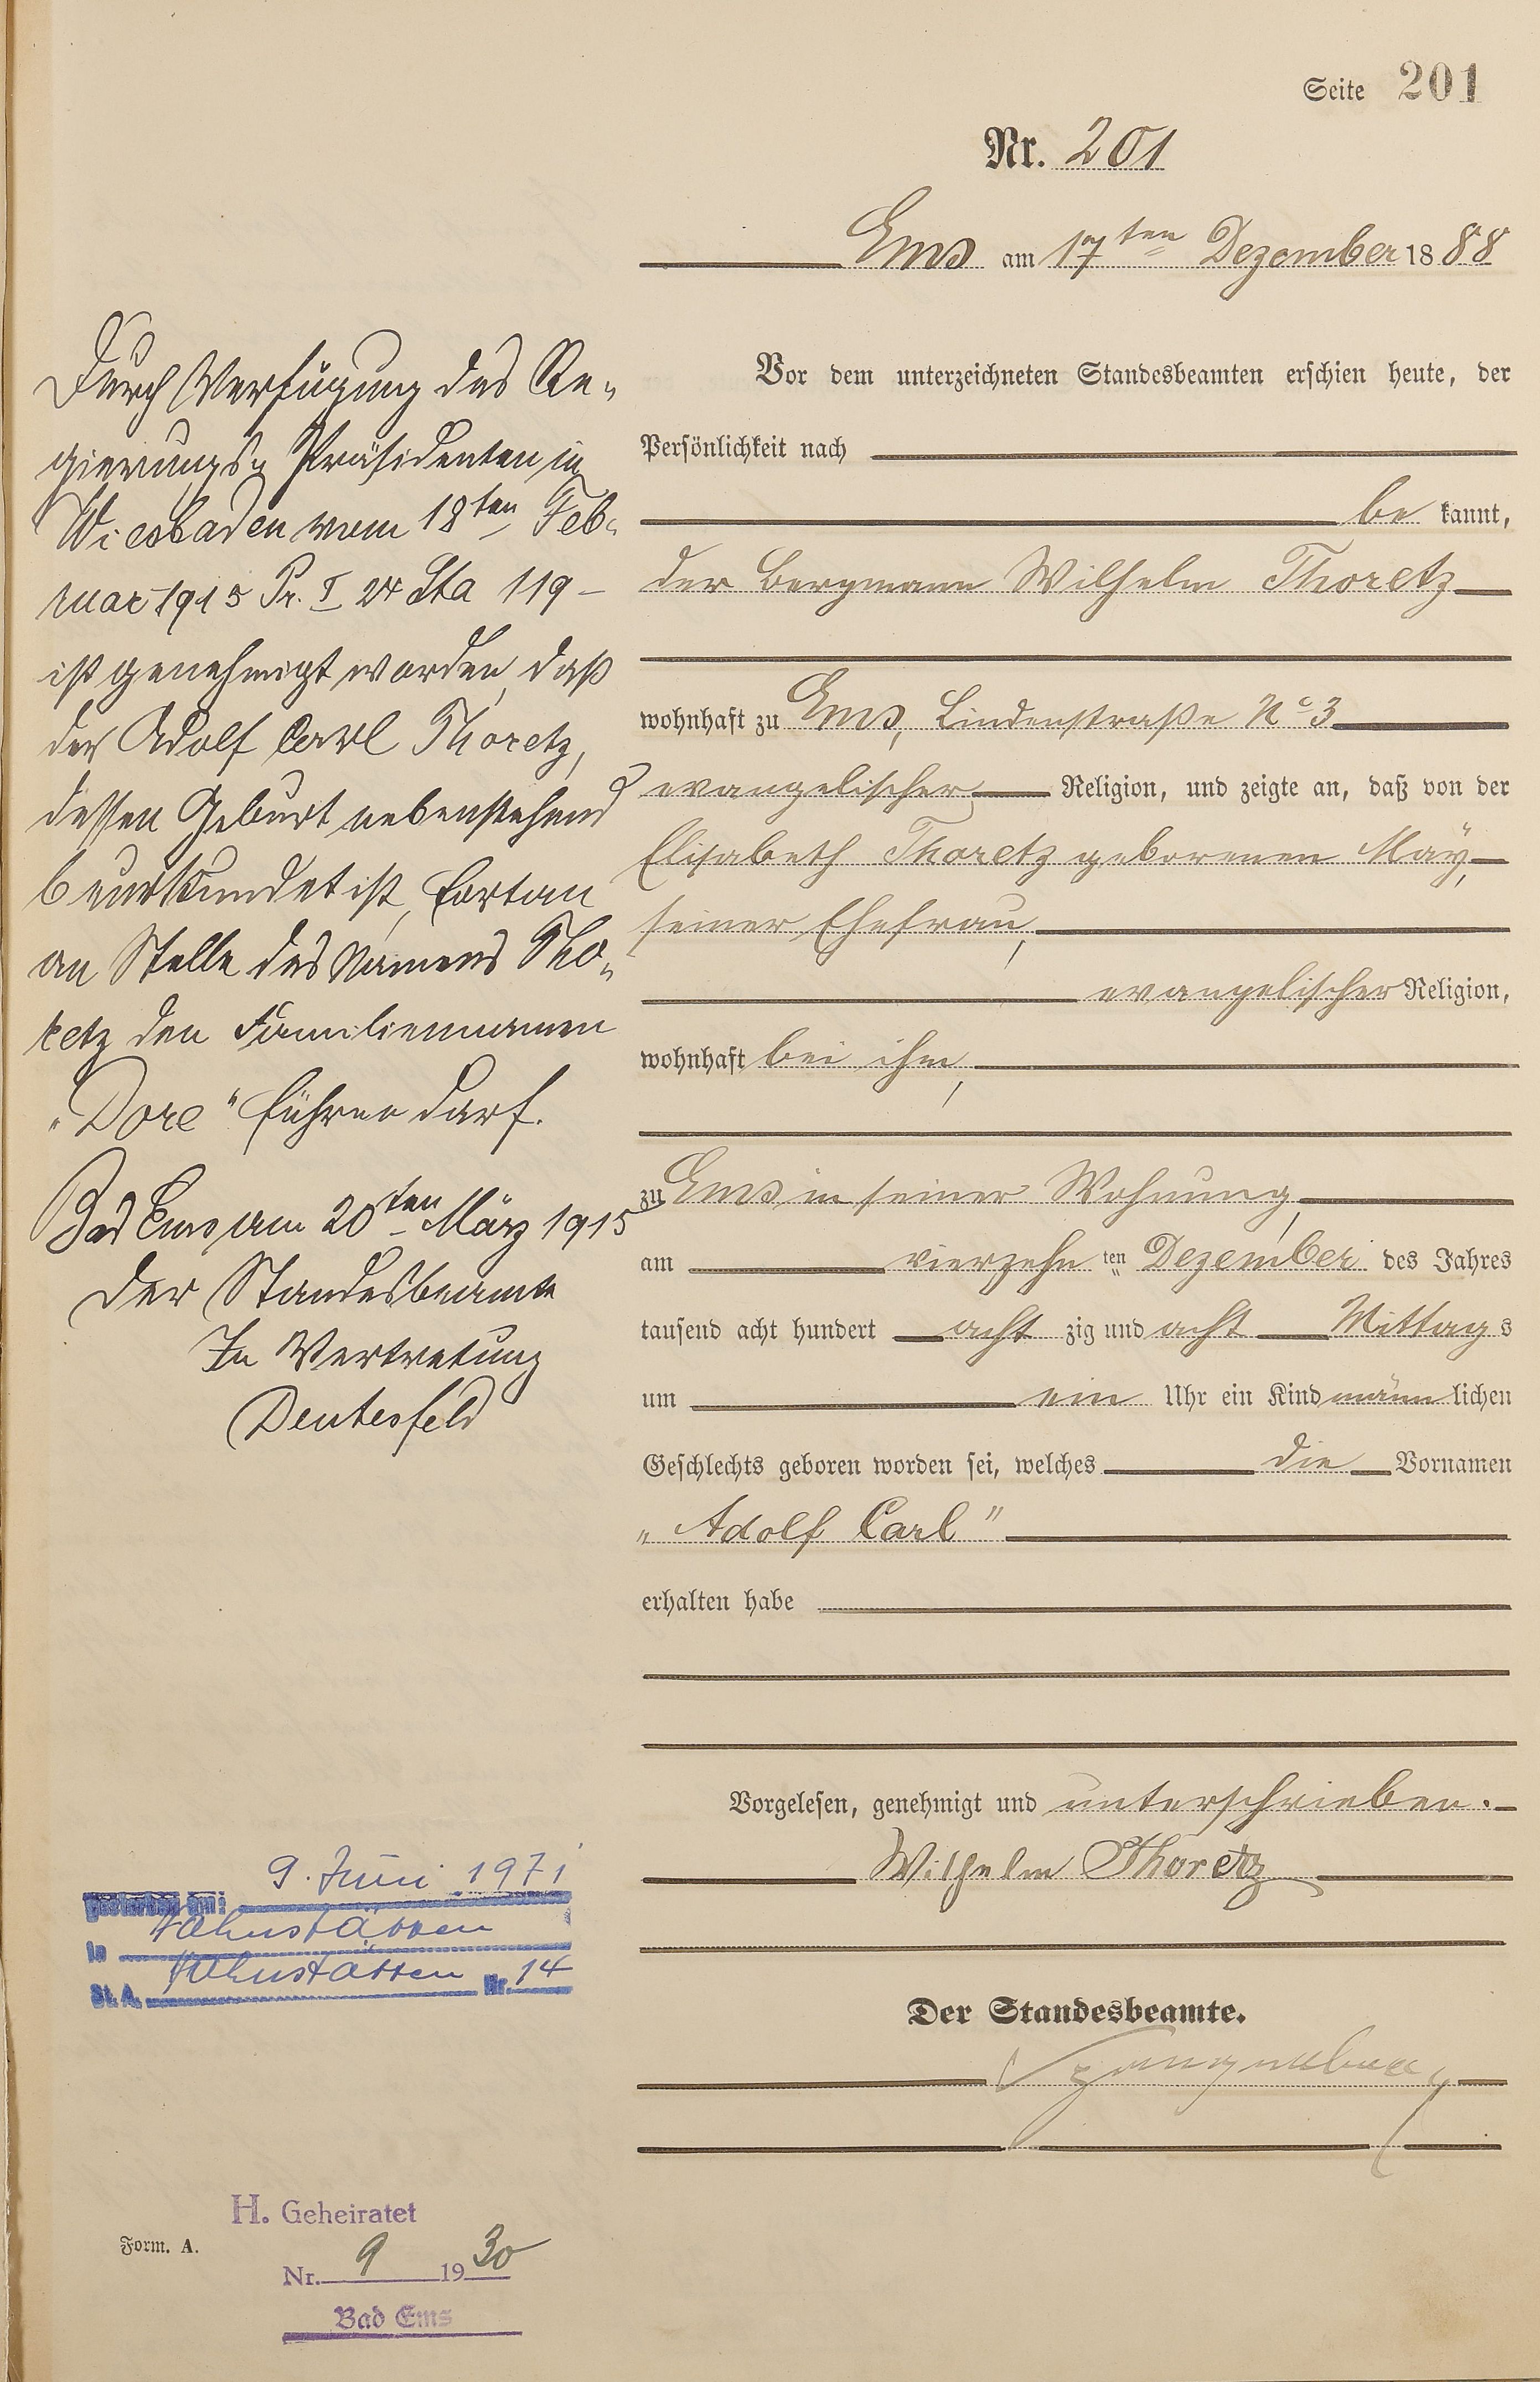 Seite 201
Nr. 201
Ems am 17ten Dezember 1888
Vor dem unterzeichneten Standesbeamten erschien heute, der
Persönlichkeit nach
be kannt,
der Bergmann Wilhelm Thoretz
wohnhaft zu Ems, Lindenstraße No 3
evangelischer Religion, und zeigte an, daß von der
Elisabeth Thoretz geborenen Maÿ,
seiner Ehefrau,
evangelischer Religion,
wohnhaft bei ihm,
zu Ems in seiner Wohnung,
am vierzehn ten Dezember des Jahres
tausend acht hundert acht zig und acht Mittags
um ein Uhr ein Kind männlichen
Geschlechts geboren worden sei, welches die Vornamen
„Adolf Carl"
erhalten habe
Vorgelesen, genehmigt und unterschrieben.
Wilhelm Thoretz
Der Standesbeamte.
Durch Verfügung des Re-
gierungs-Präsidenten in
Wiesbaden vom 18ten Feb-
ruar 1915 Pr. I 24 Sta 119 –
ist genehmigt worden, daß
der Adolf Carl Thoretz,
dessen Geburt nebenstehend
beurkundet ist, fortan
an Stelle des Namens Tho-
retz den Familiennamen
„Dore" führen darf.
Bad Ems am 20ten März 1915
Der Standesbeamte
In Vertretung
Deutesfeld
gestorben am: 9. Juni 1971
in Hahnstätten
St. A. Hahnstätten Nr. 14
H. Geheiratet
Form. A.
Nr. 9 1930
Bad Ems